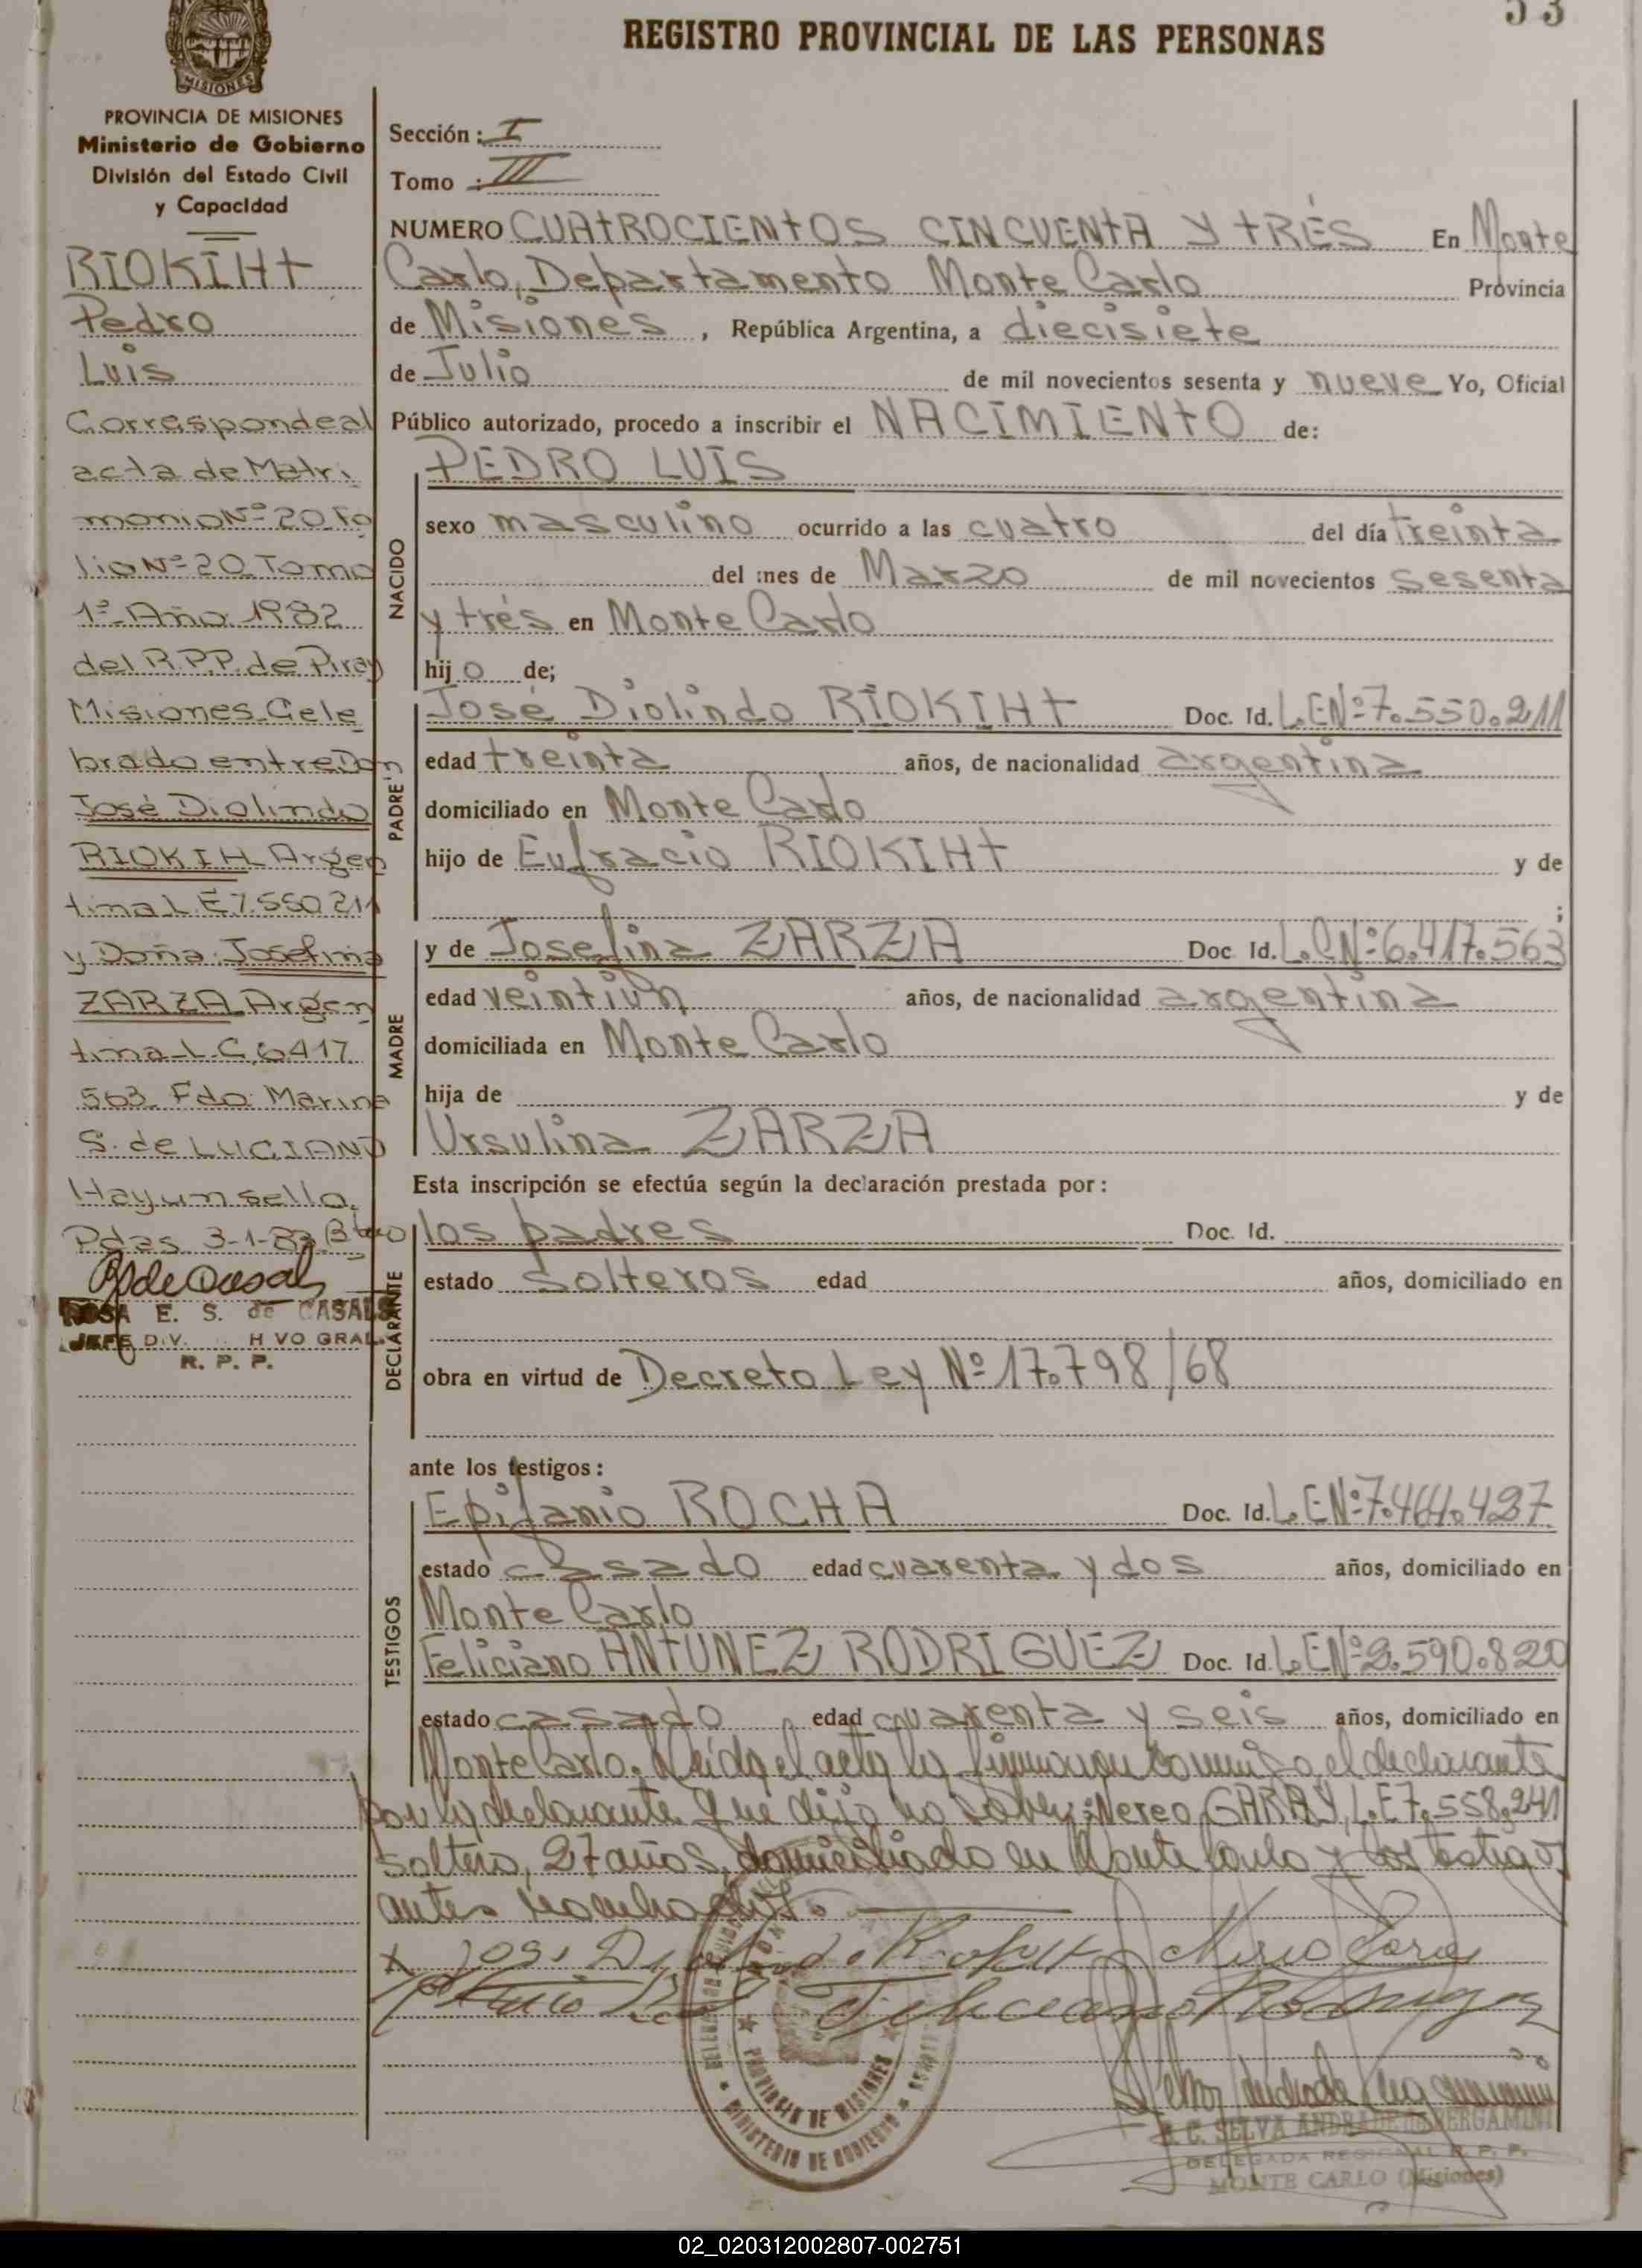 53
REGISTRO PROVINCIAL DE LAS PERSONAS
MISIONES
PROVINCIA DE MISIONES
Ministerio de Gobierno
División del Estado Civil
y Capacidad
RIOKIHt
Pedro
Luis
Corresponde al
acta de Matri
monio Nº 20 Fo
lio Nº 20 Tomo
1º Año 1982
del R.P.P. de Piray
Misiones Cele
brado entre Don
José Diolindo
RIOKIH Argen
tina L.E 7.550 211
y Doña Josefina
ZARZA Argen
tina L.C. 6417
563 Fdo: Marina
S. de LUCIANO
Hay um sello.
Pdas 3-1-83
ROSA E. S. de CASALS
JEFE DIV. H VO GRAL.
R. P. P.
Sección: I
Tomo: III
NUMERO CUAtROCIENtOS CINCUENtA Y tRÉS En Monte
Carlo, Departamento Monte Carlo Provincia
de Misiones, República Argentina, a diecisiete
de Julio de mil novecientos sesenta y nueve Yo, Oficial
Público autorizado, procedo a inscribir el NACIMIENtO de:
NACIDO
PEDRO LUIS
sexo masculino ocurrido a las cuatro del día treinta
del mes de Marzo de mil novecientos sesenta
y trés en Monte Carlo
hijo de;
PADRE
José Diolindo RIOKIHt Doc. Id. L.E Nº 7.550.211
edad treinta años, de nacionalidad argentina
domiciliado en Monte Carlo
hijo de Eufracio RIOKIHt y de
;
MADRE
y de Josefina ZARZA Doc Id. L.C Nº: 6.417.563
edad veintiun años, de nacionalidad argentina
domiciliada en Monte Carlo
hija de y de
Ursulina ZARZA
Esta inscripción se efectúa según la declaración prestada por:
DECLARANTE
los padres Doc. Id.
estado solteros edad años, domiciliado en
obra en virtud de Decreto Ley Nº 17.798/68
ante los testigos:
TESTIGOS
Epifanio ROCHA Doc. Id. L.E Nº: 7.464.427
estado casado edad cuarenta y dos años, domiciliado en
Monte Carlo
Feliciano ANtUNEZ RODRIGUEZ Doc. Id. L.E Nº: 2.590.820
estado casado edad cuarenta y seis años, domiciliado en
Monte Carlo. Leída el acta la firmaron conmigo el declarante
por la declarante que dijo no saber: Nereo GARAY, L.E 7.558.241
soltero, 27 años, domiciliado en Monte Carlo y los testigos
antes nombrados.
Feliciano Rodriguez
PROVINCIA DE MISIONES
MINISTERIO DE GOBIERNO
SELVA ANDRADE de BERGAMINI
DELEGADA REGIONAL R. P. P.
MONTE CARLO (Misiones)
02_020312002807-002751